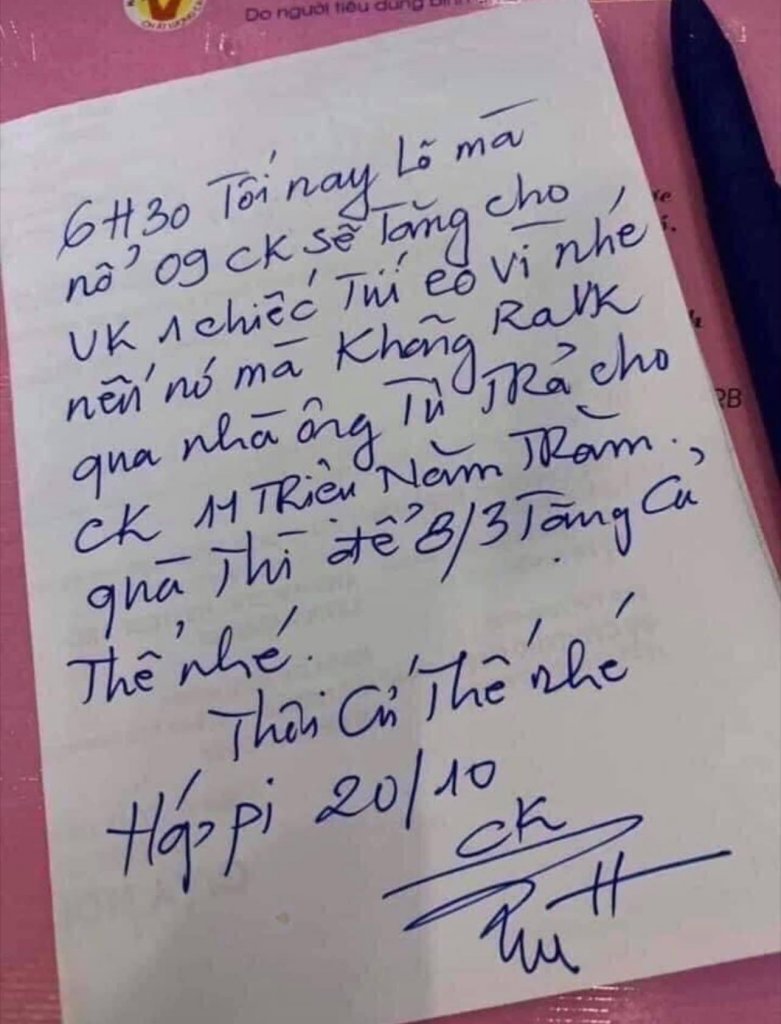 Do người tiêu dùng bình
6H30 Tối nay Lô mà
nổ 09 CK sẽ Tặng cho
VK 1 chiếc Túi eo Vì nhé
nếu nó mà Không Ra VK
qua nhà ông Tú Trả cho
CK 11 Triệu Năm Trăm.
quà Thì để 8/3 Tặng Cả
Thể nhé.
Thôi Cứ Thế nhé
Hợp pi 20/10
CK
RB